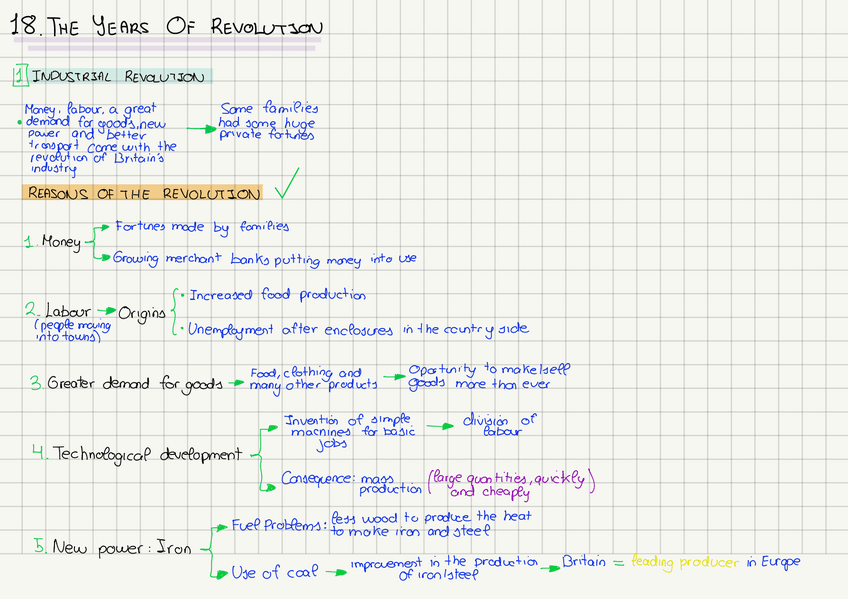 18. THE YEARS OF REVOLUTION
1 INDUSTRIAL REVOLUTION
Money, labour, a great
• demand for goods, new
power and better
transport came with the
revolution of Britain's
industry
→ Some families
had some huge
private fortunes
REASONS OF THE REVOLUTION ✓
1. Money
Fortunes made by families
Growing merchant banks putting money into use
2. Labour → Origins
(people moving
into towns)
• Increased food production
• Unemployment after enclosures in the country side
3. Greater demand for goods →
Food, clothing and
many other products →
Oportunity to make/sell
goods more than ever
4. Technological development
Invention of simple
machines for basic
jobs
→ division of
labour
Consequence: mass
production
(large quantities, quickly
and cheaply)
5. New power: Iron
Fuel Problems: less wood to produce the heat
to make iron and steel
Use of coal →
improvement in the production
of iron/steel
→ Britain = leading producer in Europe